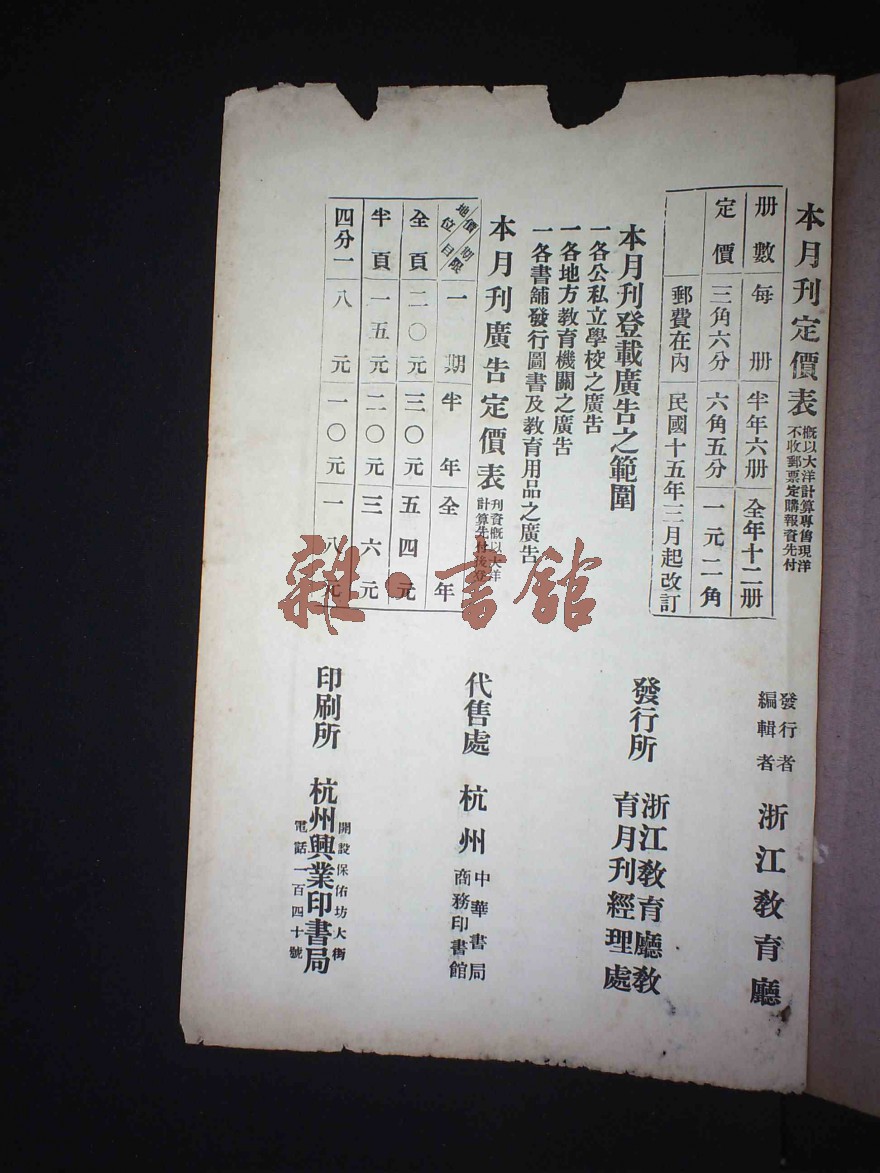 本月刊定價表
概以大洋計算專售現洋
不收郵票定購報資先付
册數 每册 半年六册 全年十二册
定價 三角六分 六角五分 一元二角
郵費在內 民國十五年三月起改訂
本月刊登載廣告之範圍
一各公私立學校之廣告
一各地方教育機關之廣告
一各書舖發行圖書及教育用品之廣告
本月刊廣告定價表
刊資概以大洋
計算先付後登
地位 價目 期限 一期 半年 全年
全頁 二〇元 三〇元 五四元
半頁 一五元 二〇元 三六元
四分一 八元 一〇元 一八元
發行者
編輯者
浙江教育廳
發行所
浙江教育廳教
育月刊經理處
代售處
杭州
中華書局
商務印書館
印刷所
杭州興業印書局
開設保佑坊大街
電話一百四十號
雜·書館